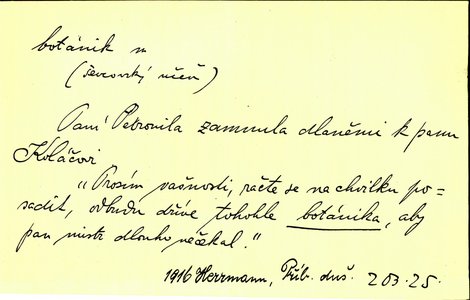 botánik m
(ševcovský učeň)
Paní Petronila zamnula dlaněmi k panu
Koláčovi
„Prosím vašnosti, račte se na chvilku po-
sadit, odbudu dříve tohohle botánika, aby
pan mistr dlouho nečekal."
1916 Herrmann, Příb. duš. 203.25.